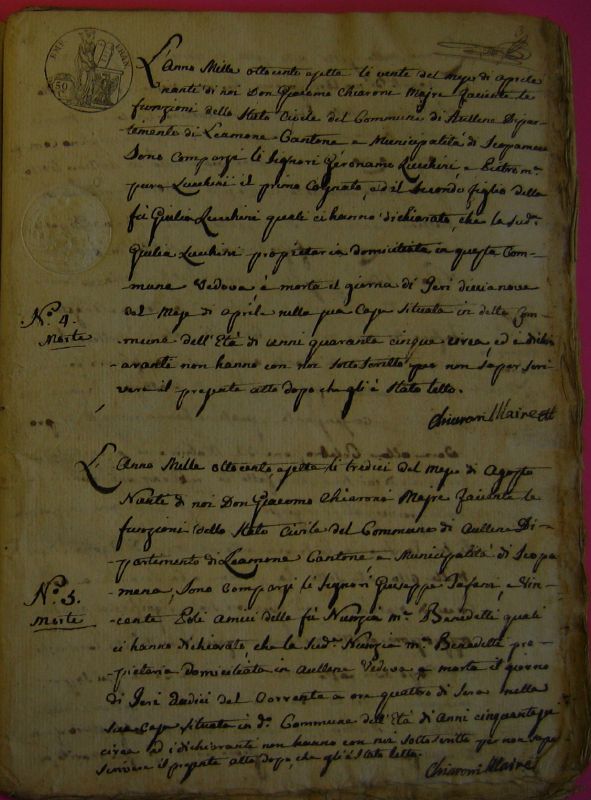 50
L'Anno Mille ottocento sette li vente del mese di Aprile
nanti di noi Don Giacomo Chiaroni Majre faciente le
funzioni dello Stato Civile del Commune di Aullene Depar-
timento di Leamone Cantone e Municipalità di Scopamena
Sono Comparsi li Signori Geronamo Lucchini e
Lucchini il primo Cognato, ed il Secondo figlio della
fù Giulia Lucchini quali ci hanno dichiarato, che la Sudª
Giulia Lucchini propietaria domiciliata in questa Com-
mune Vedova, è morta il giorno di Jeri diecinove
del Mese di Aprile nella sua Casa Situata in detta Com-
mune dell'Età di anni quaranta cinque circa, ed i dichi-
aranti non hanno con noi sotto Scritto per non saper scri-
vere il presente atto dopo che gli è Stato letto.
Chiaroni Maire
Nº 4.
Morte
L'Anno Mille ottocento sette li tredici del mese di Agosto
Nanti di noi Don Giacomo Chiaroni Majre faciente le
funzioni dello Stato Civile del Commune di Aullene Di-
partimento di Leamone Cantone e Municipalità di Scopa-
mena, Sono Comparsi li Signori Giuseppe e Vin-
cente Amici della fù Nunzia mª Benedetti quali
ci hanno dichiarato, che la Sudª Nunzia mª Benedetti pro-
pietaria domiciliata in Aullene Vedova è morta il giorno
di Jeri dodici del Corrente a ore quattro di Sera nella
sua Casa Situata in dª Commune dell'Età di Anni cinquanta
circa ed i dichiaranti non hanno con noi sotto scritto per non saper
scrivere il presente atto dopo, che gli è Stato letto.
Chiaroni Maire
Nº 5.
Morte